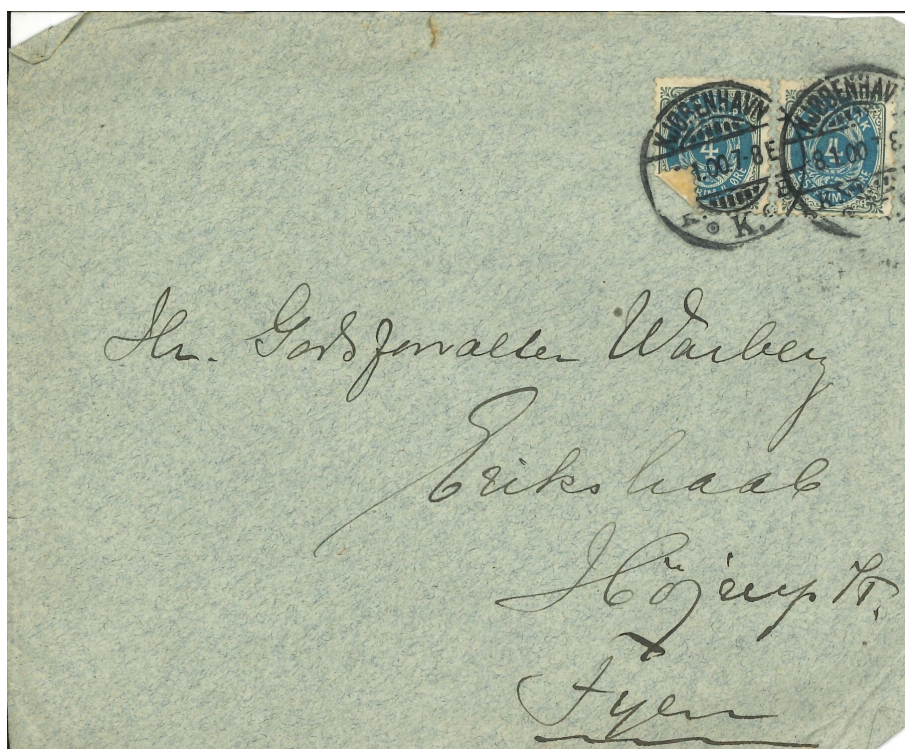 KJØBENHAVN
1.00.7-8E
K.
KJØBENHAV
8.1.00.7-8
4
4
Hr. Godsforvalter Warberg
Erikshaab
Højrup St.
Fyen